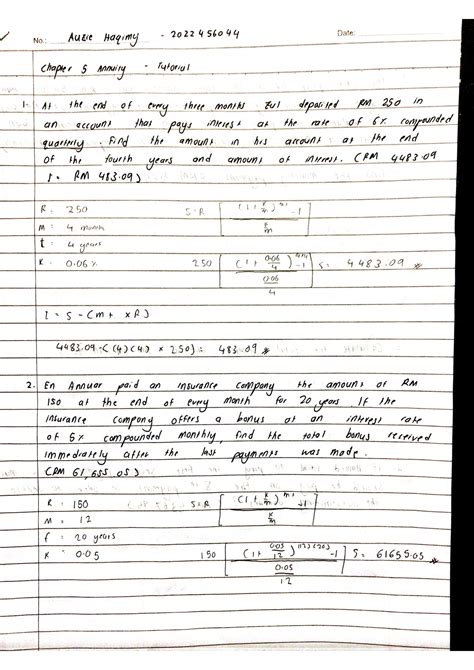 No.: Auzie Haqimy - 2022456044 Date:
Chapter 5 Annuity - Tutorial
1. At the end of every three months Zul deposited RM 250 in
an account that pays interest at the rate of 6% compounded
quarterly. Find the amount in his account at the end
of the fourth years and amount of interest. (RM 4483.09
I = RM 483.09)
R = 250 S=R [ (1 + k/m)^mt -1 / k/m ]
m = 4 month
t = 4 years
k = 0.06% 250 [ (1 + 0.06/4)^4×4 -1 / 0.06/4 ] S = 4483.09
I = S - (mt × R)
4483.09 - ((4)(4) × 250) = 483.09
2. En Annuar paid an insurance company the amount of RM
150 at the end of every month for 20 years If the
insurance company offers a bonus at an interest rate
of 5% compounded monthly, find the total bonus received
immediately after the last payments was made.
(RM 61,655.05)
R = 150 S=R [ (1 + k/m)^mt -1 / k/m ]
M = 12
t = 20 years
k = 0.05 150 [ (1 + 0.05/12)^(12)(20) -1 / 0.05/12 ] S = 61655.05